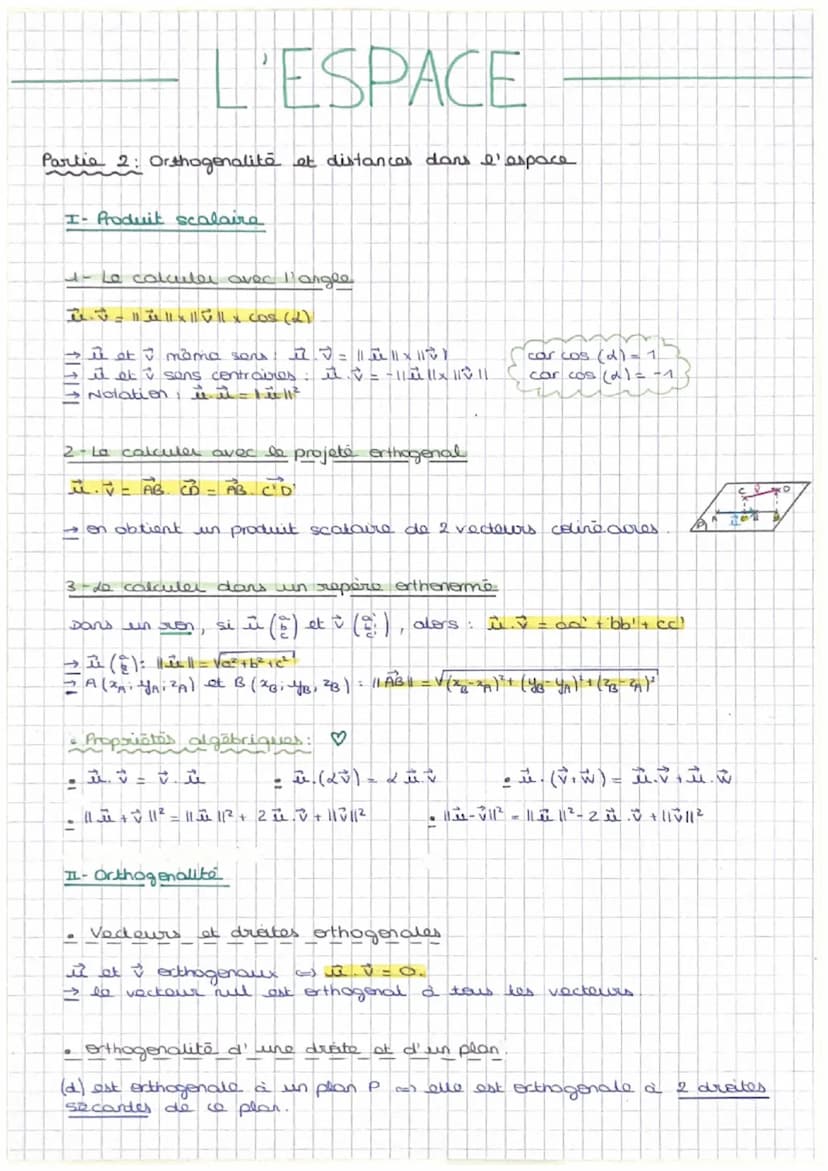 L'ESPACE
Partie 2: Orthogonalité et distances dans l'espace
I- Produit scalaire
1- Le calculer avec l'angle
u⃗.v⃗ = ||u⃗|| x ||v⃗|| x cos (α)
→ u⃗ et v⃗ même sens : u⃗.v⃗ = ||u⃗|| x ||v⃗|| car cos (α) = 1
→ u⃗ et v⃗ sens contraires : u⃗.v⃗ = -||u⃗|| x ||v⃗|| car cos (α) = -1
→ Notation : u⃗.u⃗ = ||u⃗||²
2- Le calculer avec le projeté orthogonal
u⃗.v⃗ = AB⃗.CD⃗ = AB⃗.C'D'⃗
C v⃗ D
→ on obtient un produit scalaire de 2 vecteurs colinéaires. P A u⃗ C' B D'
3- Le calculer dans un repère orthonormé
Dans un ron, si u⃗ (a b c) et v⃗ (a' b' c'), alors : u⃗.v⃗ = aa' + bb' + cc'
→ u⃗ (a b c) : ||u⃗|| = √a²+b²+c²
→ A (xA; yA; zA) et B (xB; yB, zB) : ||AB⃗|| = √(xB-xA)² + (yB-yA)² + (zB-zA)²
• Propriétés algébriques : ♡
• u⃗.v⃗ = v⃗.u⃗ • u⃗.(αv⃗) = α u⃗.v⃗ • u⃗.(v⃗+w⃗) = u⃗.v⃗ + u⃗.w⃗
• ||u⃗ + v⃗||² = ||u⃗||² + 2 u⃗.v⃗ + ||v⃗||² • ||u⃗-v⃗||² = ||u⃗||² - 2 u⃗.v⃗ + ||v⃗||²
II- Orthogonalité
• Vecteurs et droites orthogonales
u⃗ et v⃗ orthogonaux ⇔ u⃗.v⃗ = 0.
→ le vecteur nul est orthogonal à tous les vecteurs
• Orthogonalité d'une droite et d'un plan.
(d) est orthogonale à un plan P ⇔ elle est orthogonale à 2 droites
sécantes de ce plan.